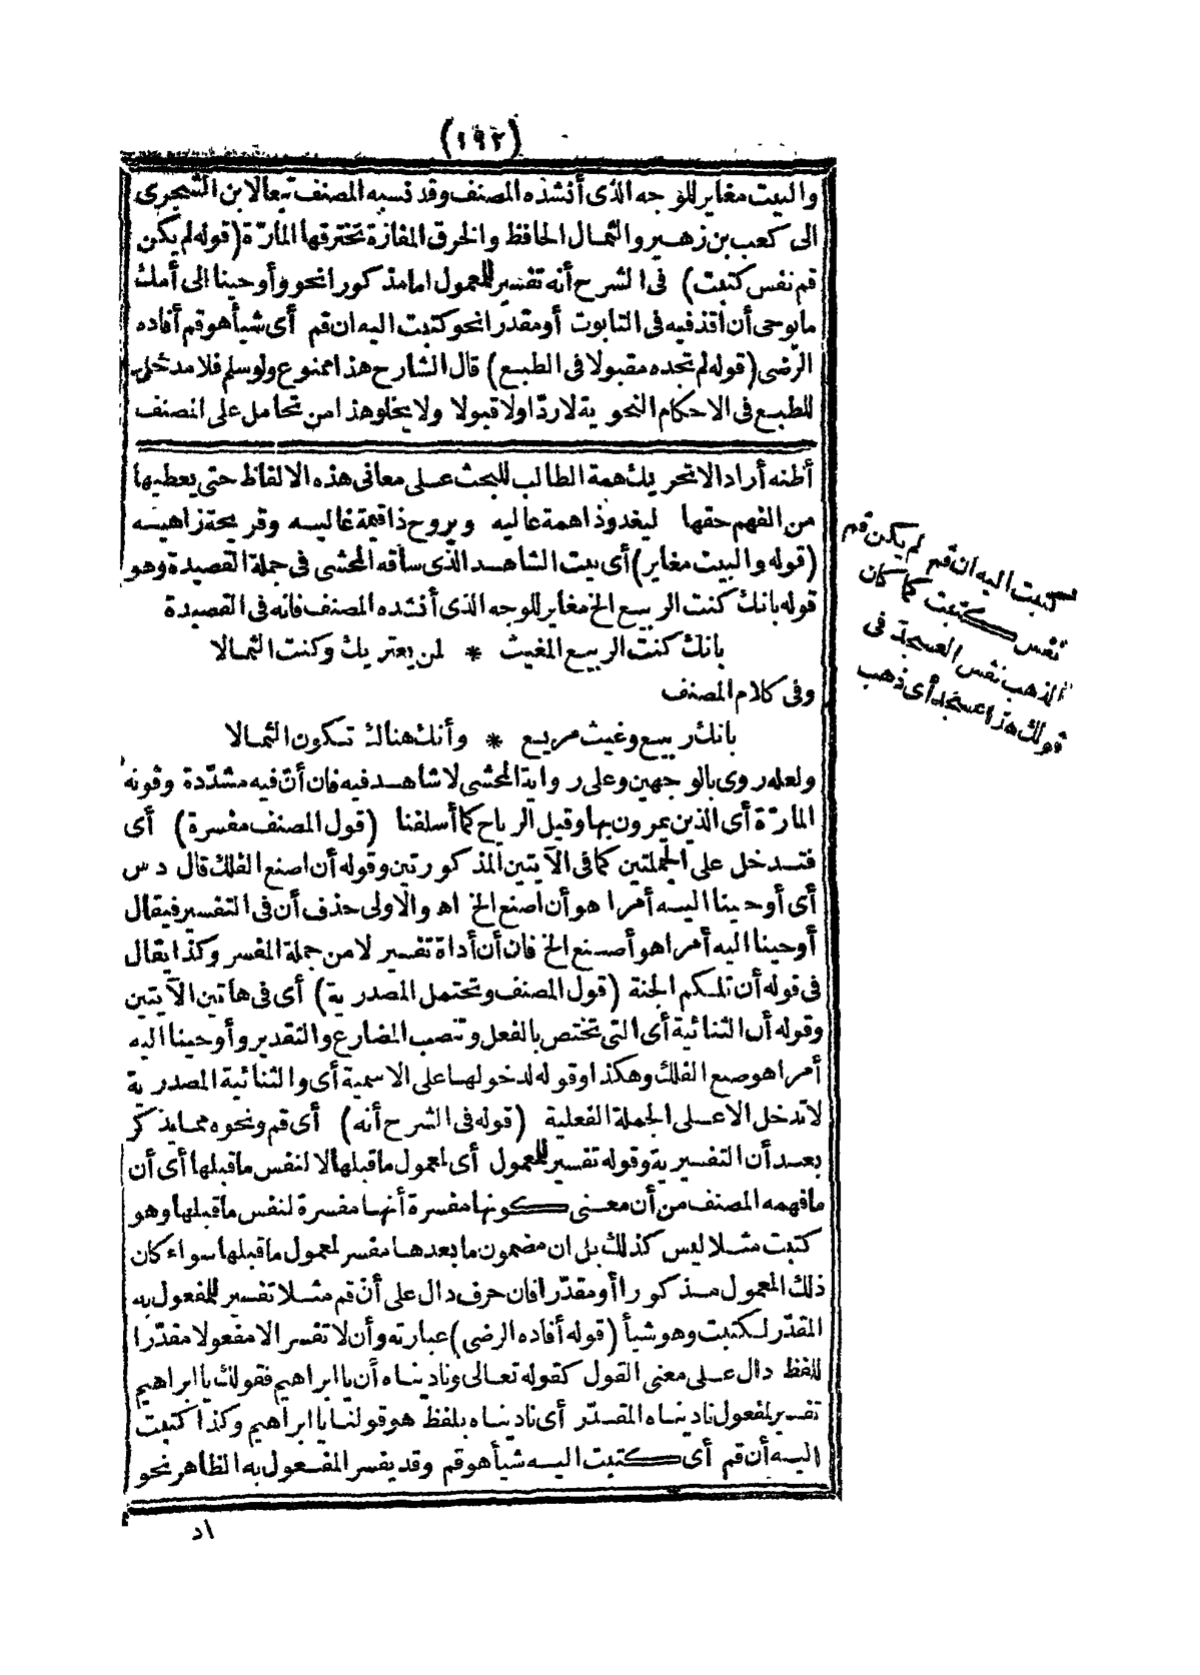 (١٩٢)
والبيت مغاير للوجه الذى أنشده المصنف وقد نسبه المصنف تبعا لابن الشجرى
الى كعب بن زهير والثمال الحافظ والخرق المفازة تخترقها المارّة (قوله لم يكن
قم نفس كتبت) فى الشرح أنه تفسير للمعمول اما مذكورا نحو وأوحينا الى أمك
مايوحى أن اقذفيه فى التابوت أو مقدرا نحو كتبت اليه ان قم أى شيأ هو قم أفاده
الرّضى (قوله لم تجده مقبولا فى الطبع) قال الشارح هذا ممنوع ولو سلم فلا مدخل
للطبع فى الاحكام النحوية لا ردّا ولا قبولا ولا يخلو هذا من تحامل على المصنف
أظنه أراد الاتحريك همة الطالب للبحث على معانى هذه الالفاظ حتى يعطيها
من الفهم حقها ليغدو ذا همة عاليه ويروح ذا قيمة غاليه وقريحة زاهيه
(قوله والبيت مغاير) أى بيت الشاهد الذى ساقه المحشى فى جملة القصيدة وهو
قوله بانك كنت الربيع الخ مغاير للوجه الذى أنشده المصنف فانه فى القصيدة
بانك كنت الربيع المغيث * لمن يعتريك وكنت الثمالا
وفى كلام المصنف
بانك ربيع وغيث مريع * وأنك هناك تكون الثمالا
ولعله روى بالوجهين وعلى رواية المحشى لا شاهد فيه فان أنّ فيه مشدّدة وقوله
المارّة أى الذين يمرون بها وقيل الرياح كما أسلفنا (قول المصنف مفسرة) أى
فتدخل على الجملتين كما فى الآيتين المذكورتين وقوله أن اصنع الفلك قال د س
أى أوحينا اليه أمرا هو أن اصنع الخ اه والاولى حذف أن فى التفسير فيقال
أوحينا اليه أمرا هو أصنع الخ فان أن أداة تفسير لا من جملة المفسر وكذا يقال
فى قوله أن تلكم الجنة (قول المصنف وتحتمل المصدرية) أى فى هاتين الآيتين
وقوله أن الثنائية أى التى تختص بالفعل وتنصب المضارع والتقدير وأوحينا اليه
أمرا هو صنع الفلك وهكذا وقوله لدخولها على الاسمية أى والثنائية المصدرية
لا تدخل الا على الجملة الفعلية (قوله فى الشرح أنه) أى قم ونحوه مما يذكر
بعد أن التفسيرية وقوله تفسير للمعمول أى لمعمول ماقبلها لا لنفس ماقبلها أى أن
مافهمه المصنف من أن معنى كونها مفسرة أنها مفسرة لنفس ماقبلها وهو
كتبت مثلا ليس كذلك بل ان مضمون مابعدها مفسر لمعمول ماقبلها سواء كان
ذلك المعمول مذكورا أو مقدّرا فان حرف دال على أن قم مثلا تفسير للمفعول به
المقدّر لكتبت وهو شيأ (قوله أفاده الرضى) عبارته وأن لا تفسر الا مفعولا مقدّرا
للفظ دال على معنى القول كقوله تعالى وناديناه أن يا ابراهيم فقولك يا ابراهيم
تفسير لمفعول ناديناه المقدّر أى ناديناه بلفظ هو قولنا يا ابراهيم وكذا كتبت
اليه أن قم أى كتبت اليه شيأ هو قم وقد يفسر المفعول به الظاهر نحو
اد
كتبت اليه ان قم لم يكن قم
نفس كتبت كما كان
الذهب نفس العسجد فى
قولك هذا عسجد أى ذهب